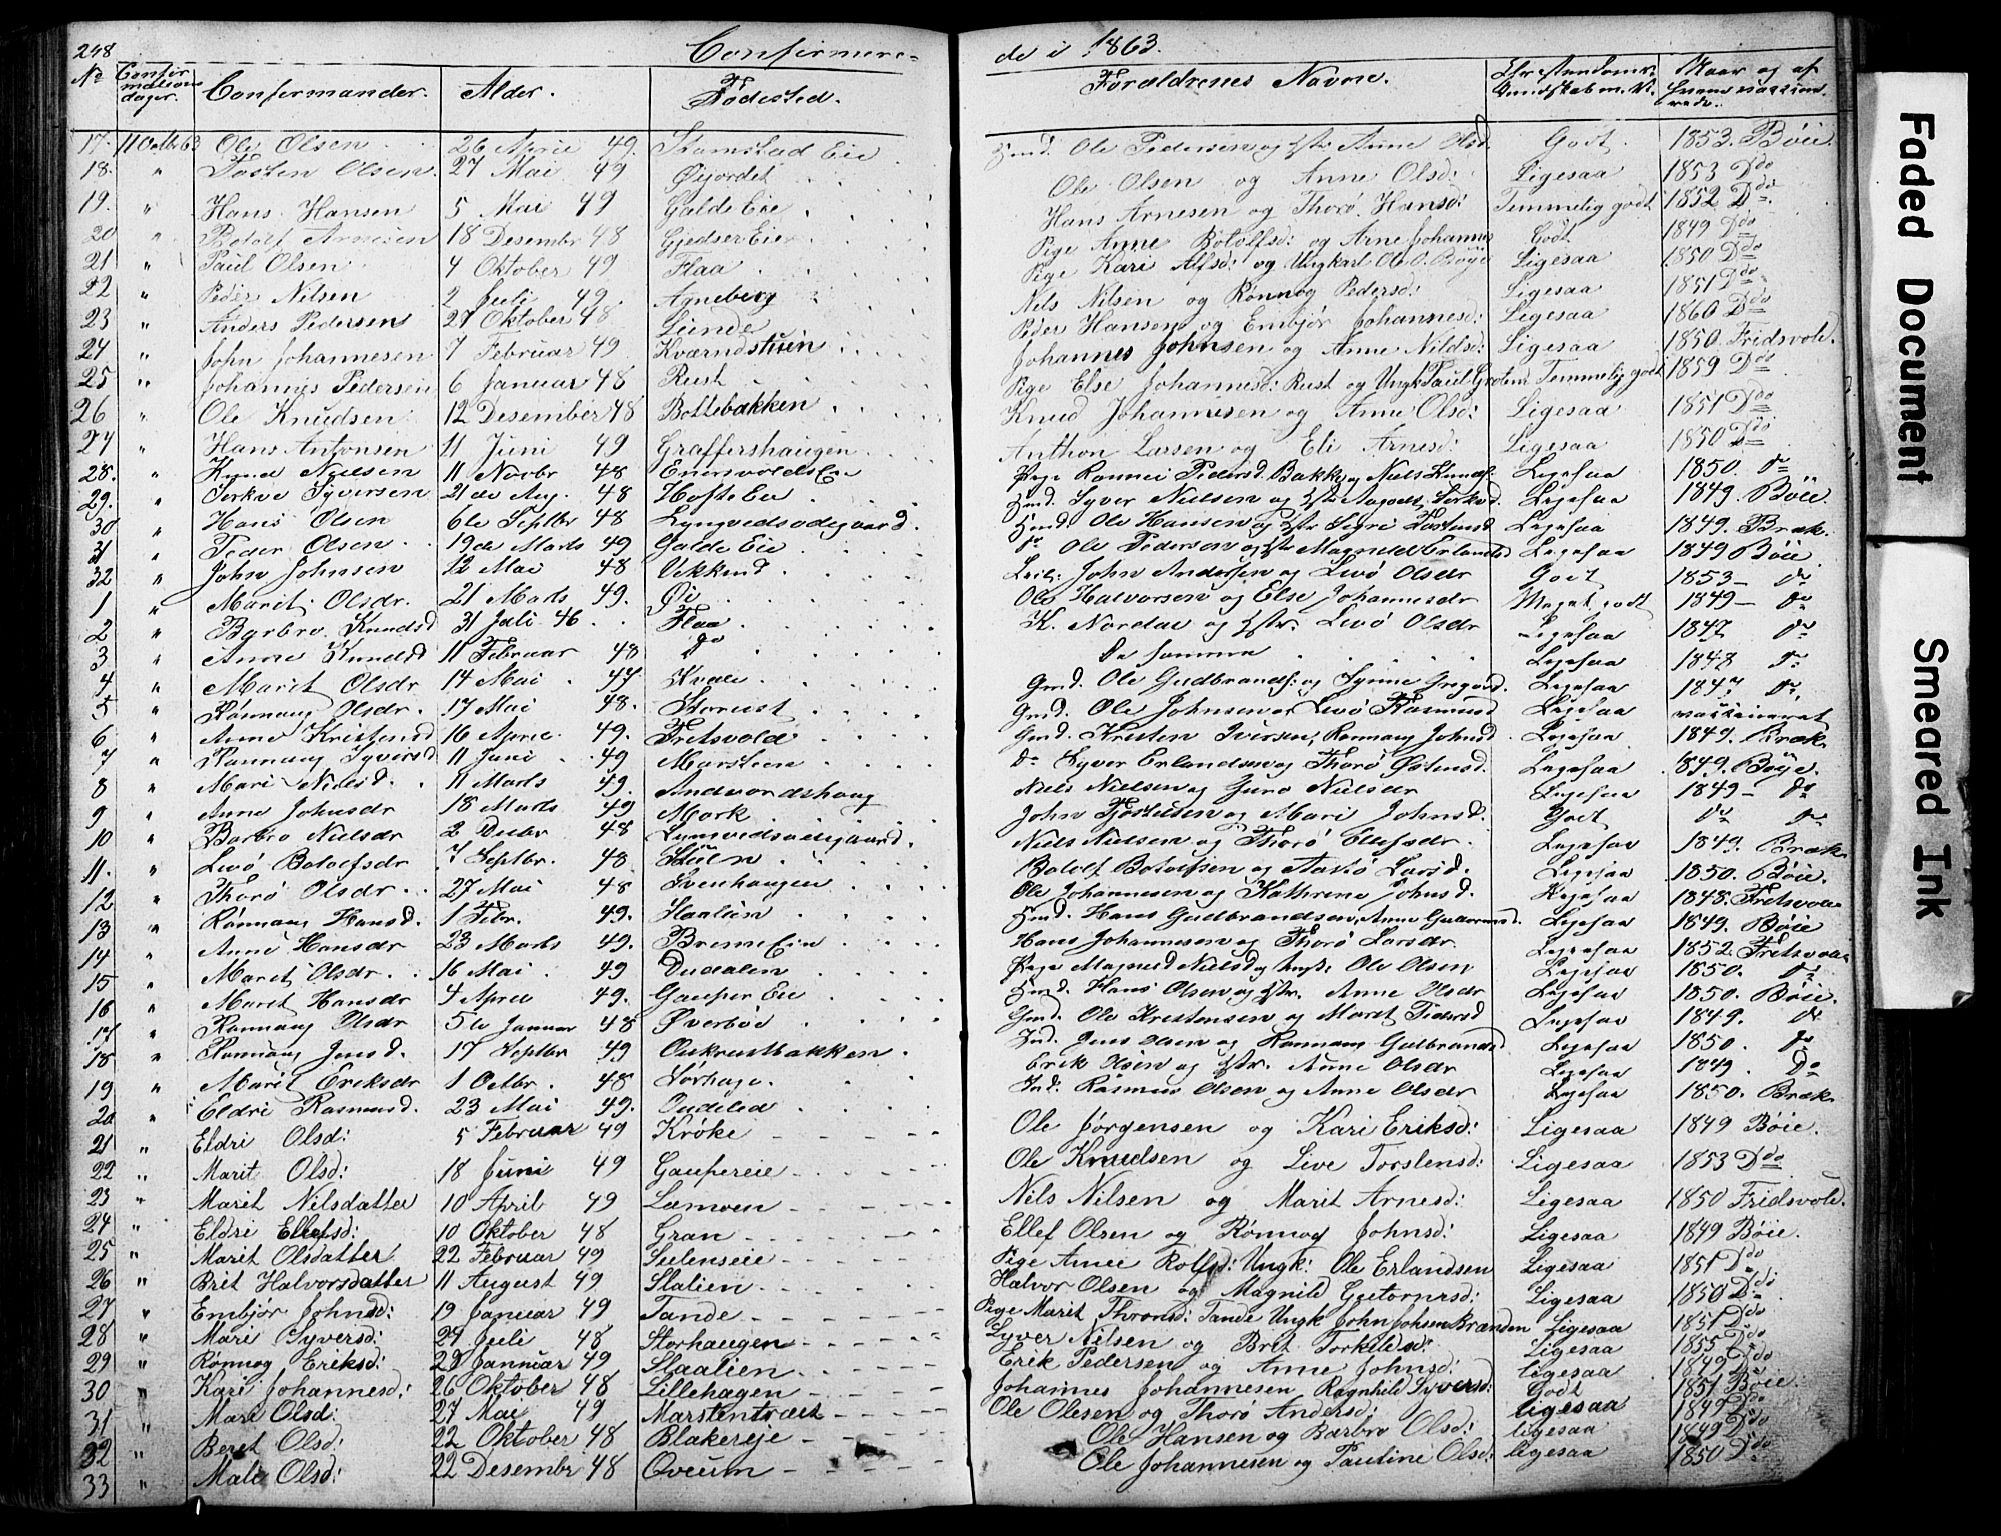 248 Confirmere- de i 1863.
No Confirmations dager. Confirmander. Alder. Fødested. Forældrenes Navne. Christendomskundskab m. V. Naar og af hvem vaccinerede.
17. 11 Octb 63 Ole Olsen 26 April 49. Stamstad Eie Hmd. Ole Pedersen og Hstr Anne Olsd. Godt. 1853. Bøie.
18. " Tosten Olsen. 27 Mai 49 Øijordet Ole Olsen og Anne Olsd: Ligesaa 1853 Ddo
19. " Hans Hansen 5 Mai 49 Galde Eie Hans Arnesen og Thorø Hansd: Temmelig godt 1852 Ddo
20 " Botolf Arnesen 18 Desembr 48 Gjedser Eie Pige Anne Botolfsd: og Arne Johannes Godt 1849 Ddo
21 " Paul Olsen 4 Oktober 49 Flaa Pige Kari Alfsd: og Ungkarl Ole O. Bøye Ligesaa 1850 Ddo
22 " Peder Nilsen 2 Juli 49. Agneberg Nils Nilsen og Rønnog Pedersd: Ligesaa 1851 Ddo
23 " Anders Pedersen 27 Oktober 48 Lunde Peder Hansen og Embjør Johannesd: Ligesaa 1860 Ddo
24 " John Johannesen 7 Februar 49 Kværndstuen Johannes Johnsen og Anne Nilsd: Ligesaa 1850. Fridsvold.
25 " Johannes Pedersen 6 Januar 48 Rust Pige Else Johannesd: Rust og Ungk Paul Temmelig godt 1859 Ddo
26 " Ole Knudsen 12 Desember 48 Bottebakken Knud Johannesen og Anne Olsd: Ligesaa 1851 Ddo
27 " Hans Antonsen 11 Juni 49 Graffershaugen Anthon Larsen og Eli Arnesd: Ligesaa 1850 Ddo
28. " Knud Nielsen 11 Novbr 48 Enevolds Eie Pige Rannei Pedersd. Bakke og Niels Knuds: Ligesaa 1850. do
29. " Syversen 21de Aug. 48 Hofte Eie Hmd. Syver Nielsen og Hstr Ligesaa 1849. Bøie.
30 " Hans Olsen 6te Septbr 48 Lyngvedsødegaard. Hmd. Ole Hansen og Hstr Sigri Tostensd Ligesaa 1849. Bræk.
31 " Peder Olsen 19de Marts 49 Galde Eie do Ole Pedersen og Hstr Magnild Erlandsd Ligesaa 1849 Bøie
32 " John Johnsen 12 Mai 48 Vekkend Leil: John Andersen og Livø Olsdr Godt 1853- do
1 " Marit Olsdr. 21 Marts 49. Øi Ole Halvorsen og Else Johannesdr Meget godt 1849- do
2 " Barbro Knudsd 31 Juli 46 Flaa K. Nordal og Hstr. Livø Olsdr Ligesaa 1847 do
3 " Anne Knudsd 11 Februar 48 do De samme Ligesaa 1848 do
4 " Marit Olsdr 14 Mai 47 Kvale Gmd. Ole Gudbrands: og Synne Gregord. Ligesaa 1847 do.
5 " Rønnaug Olsdr. 17 Mai 48. Storust Gmd. Ole Johnsen og Livø Rasmusd Ligesaa vaksineret
6 " Anne Kristensd 16 April 49. Fretsvold Gmd. Kristen Iversen, Rønnaug Johnsd. Ligesaa 1849. Bræk
7 " Rannaug Syversd 11 Juni 49 Marstein do Syver Erlandsen og Thorø Østensd. Ligesaa 1849. Bøye.
8 " Mari Nielsd. 11 Marts 49. Andvordshaug Niels Nielsen og Guro Nielsdr Ligesaa 1849- do
9 " Anne Johnsdr 18 Marts 49 Mork John Tostensen og Mari Johnsd. Godt do do
10 " Barbro Nielsdr 2 Decbr 48 Lyngvedsødegaard. Niels Nielsen og Thorø Ellefsdr. Ligesaa 1849. Bræk
11. " Livø Botolfsdr 7 Septbr. 48 Stuen Botolf Botolfsen og Larsd. Ligesaa 1850. Bøie.
12 " Thorø Olsdr. 27 Mai 48 Svenhaugen Ole Johannesen og Kathrine Johnsd. Ligesaa 1848. Fretsvold
13 " Rønnaug Hansd. 1 Febr. 49. Staalien Hmd. Hans Gudbrandsen, Anne Ligesaa 1849. Bøie
14 " Anne Hansdr 23 Marts 49. Breme Eie Hans Johannesen og Thorø Larsdr. Ligesaa 1852. Fretsvold
15 " Maret Olsdr. 16 Mai 49 Dudalen Pige Magnild Nielsd og Ungk: Ole Olsen Ligesaa 1850. do
16 " Maret Hansdr 4 April 49. Gauper Eie Hmd. Hans Olsen og Hstr. Anne Olsdr Ligesaa 1850. Bøie.
17 " Rønnaug Olsdr 5te Januar 48 Øverbøe Gmd. Ole Kristensen og Maret Pedersd Ligesaa 1849. do
18 " Rannaug Jensd. 17 Septbr 49 Onkrustbakken. Ind. Jens Olsen og Rannaug Gulbrandsd Ligesaa 1850. do
19 " Marit Eriksdr 1 Octbr. 48 Sørhage. Erik Olsen og Hstr. Anne Olsdr Ligesaa 1849. Do
20 " Eldri Rasmusd. 23 Mai 49. Oudelad Ind: Rasmus Olsen og Anne Olsdr Ligesaa 1850. Bræk
21 " Eldri Olsd: 5 Februar 49 Krøke Ole Jørgensen og Kari Eriksd: Ligesaa 1849 Bøie.
22 " Marit Olsd: 18 Juni 49 Gaupereie Ole Knudsen og Live Torstensd: Ligesaa 1853 Ddo
23 " Marit Nilsdatter 10 April 49 Læmoen Nils Nilsen og Marit Arnesd: Ligesaa 1850 Fridsvold.
24 " Eldri Ellefsd: 10 Oktober 48 Gran Ellef Olsen og Rønnog Johnsd: Ligesaa 1849 Bøie.
25 " Marit Olsdatter 22 Februar 49 Sulenseie Pige Amee Rolfsd: Ungk: Ole Erlandsen Ligesaa 1851 Ddo
26 " Brit Halvorsdatter 11 August 49 Slalien Halvor Olsen og Magnild Gutormsd: Ligesaa 1850 Ddo
27 " Embjør Johnsd: 19 Januar 49 Tande Pige Marit Thronsd: Tande Ungk John Johsen Branden Ligesaa 1851 Ddo
28 " Mari Syversd: 24 Juli 48 Storhaugen Syver Nilsen og Brit Torkildsd: Ligesaa 1855 Ddo
29 " Rønnog Eriksd: 28 Januar 49 Slaalien Erik Pedersen og Anne Johnsd: Ligesaa 1849 Ddo
30 " Kari Johannesd: 26 Oktober 48 Lillehagen Johannes Johannesen, Ragnhild Syversd: Godt 1851 Bøie.
31 " Mari Olsd: 27 Mai 49 Marstentræet Ole Olesen og Thorø Andersd: Ligesaa 1849 Ddo
32 " Beret Olsd: 22 Oktober 48 Blakereje Ole Hansen og Barbro Olsd: Ligesaa 1849 Ddo
33 " Mali Olsd: 22 Desembr 48 Overum Ole Johannesen og Pauline Olsd: Ligesaa 1850 Ddo
Faded Document
Smeared Ink